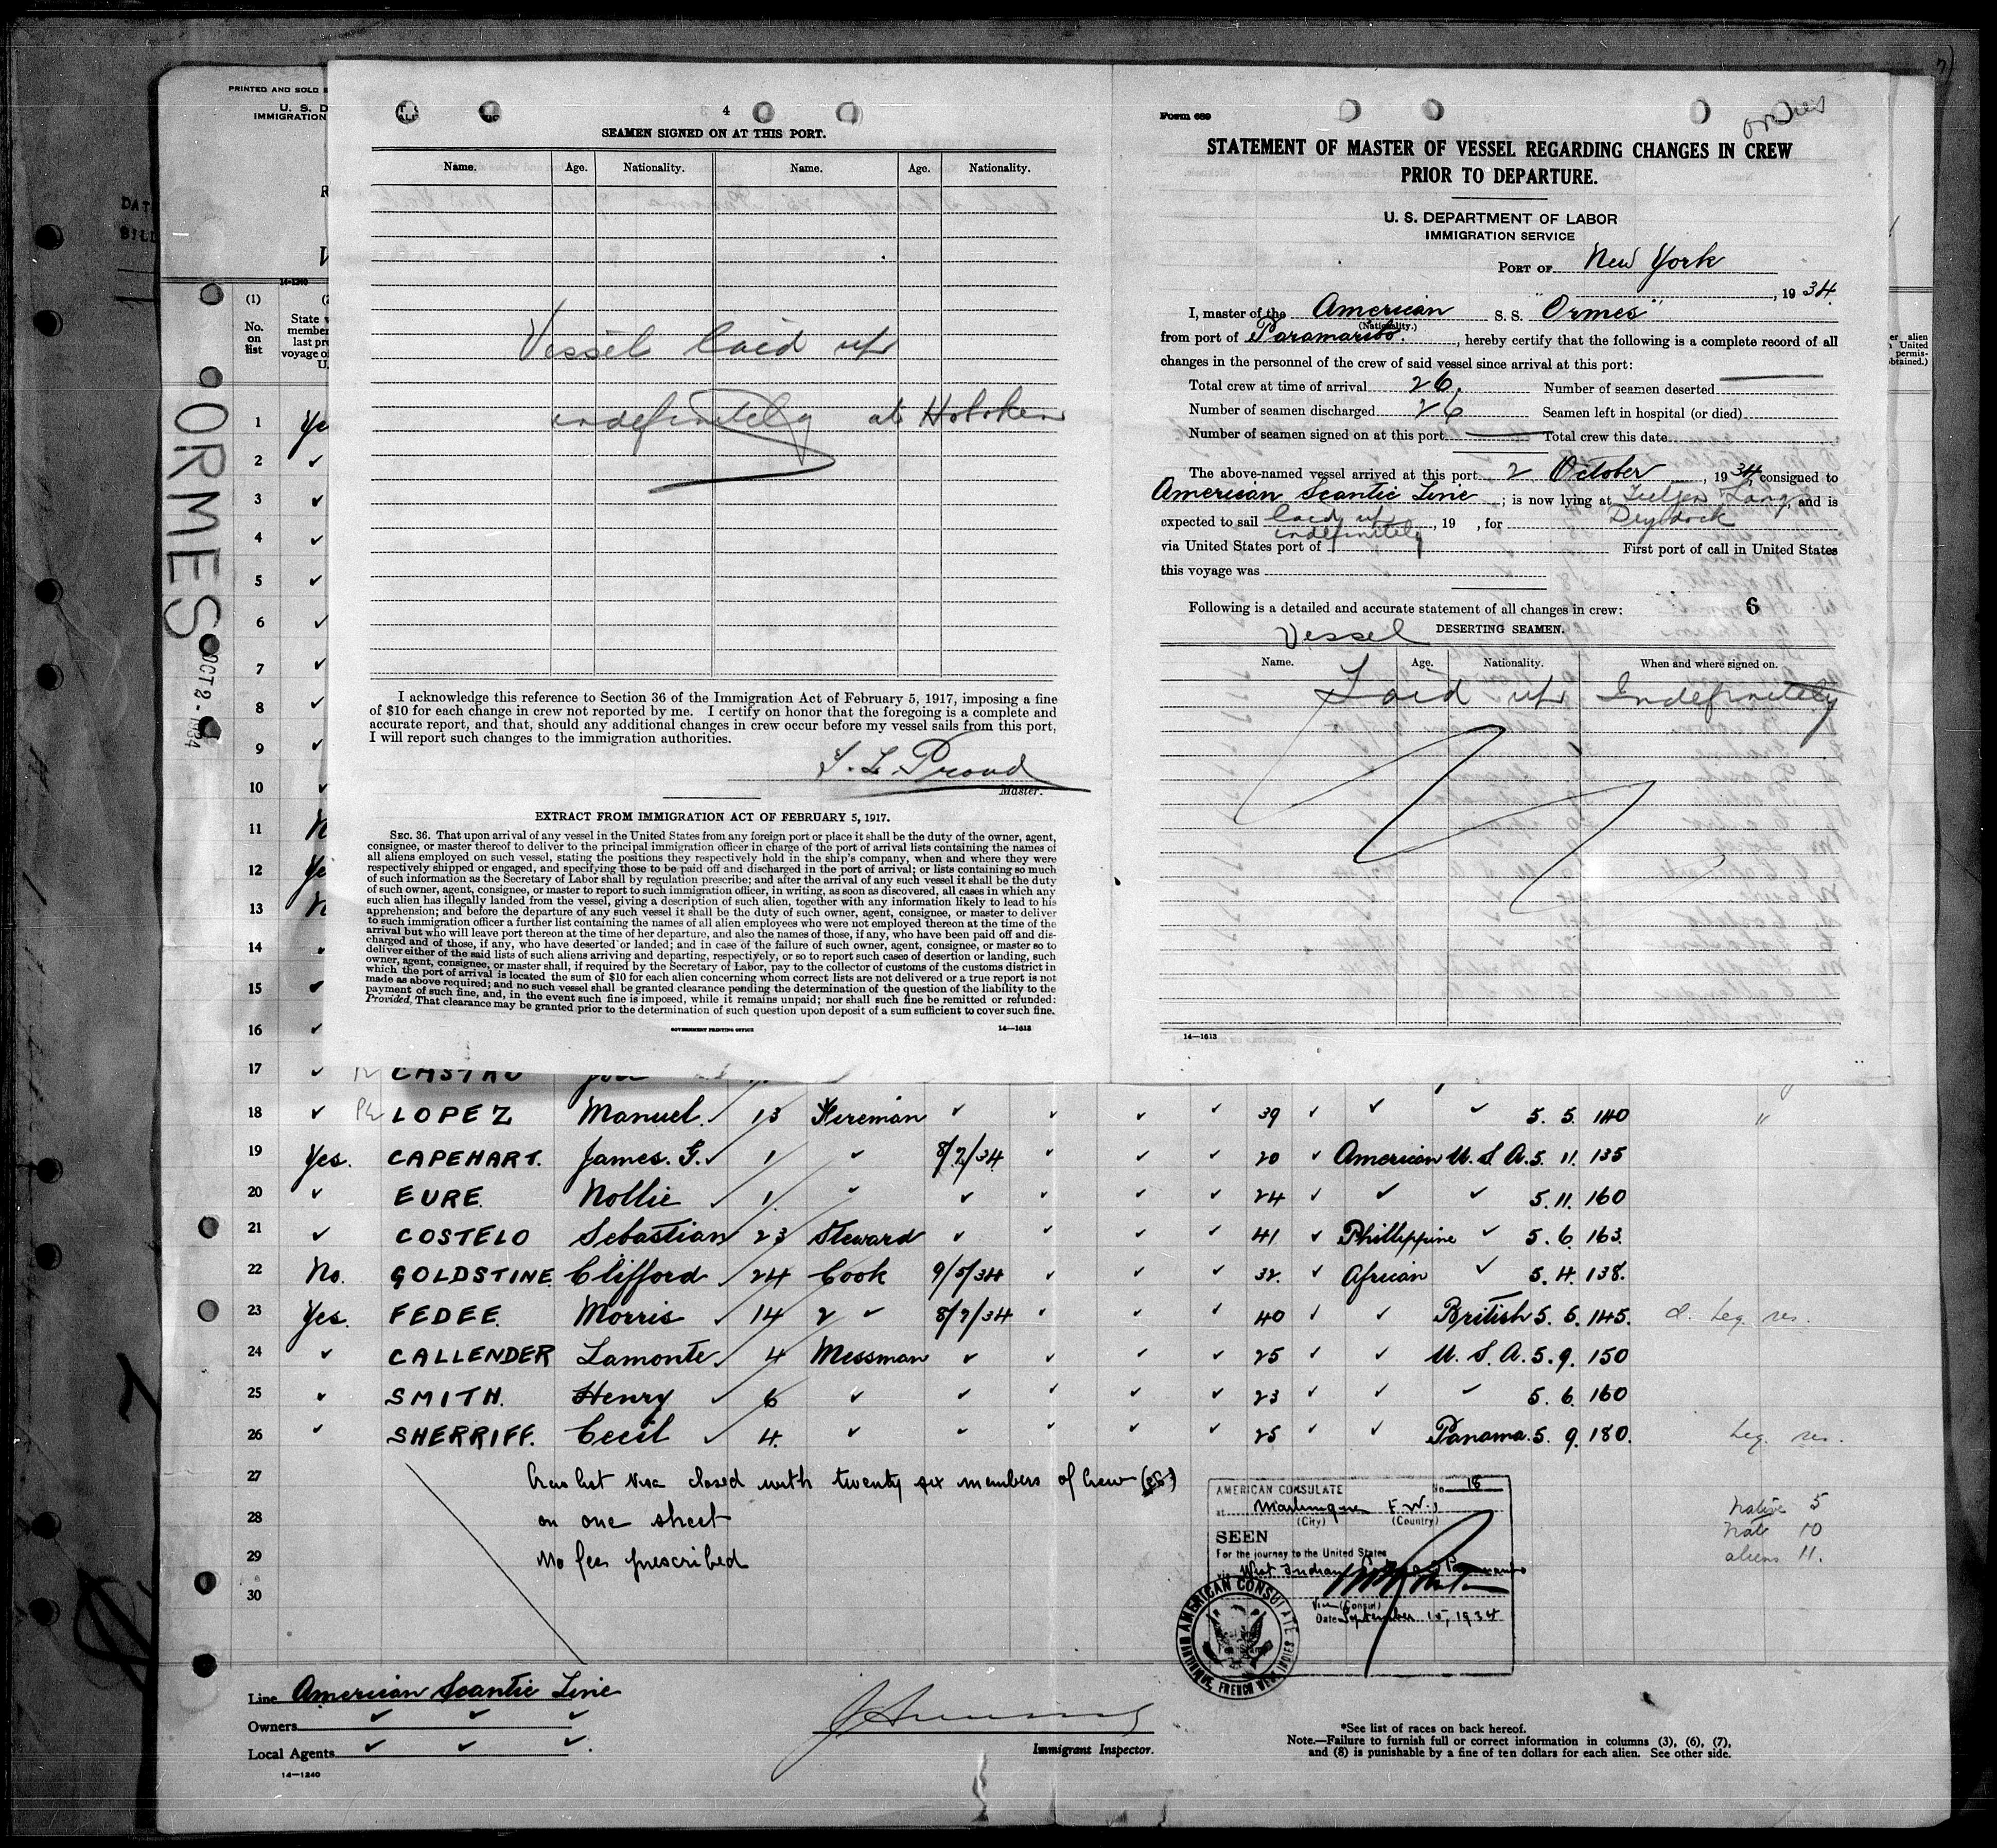 PRINTED AND SOLD
U. S. D
IMMIGRATION
DAT
BILL
14-1240
(1)
No.
on
list
State
member
last pre
voyage of
U.
ORMES
OCT 2 - 1934
4
SEAMEN SIGNED ON AT THIS PORT.
Name. Age. Nationality. Name. Age. Nationality.
Vessel laid up
indefinitely at Hoboken
I acknowledge this reference to Section 36 of the Immigration Act of February 5, 1917, imposing a fine
of $10 for each change in crew not reported by me. I certify on honor that the foregoing is a complete and
accurate report, and that, should any additional changes in crew occur before my vessel sails from this port,
I will report such changes to the immigration authorities.
Master.
EXTRACT FROM IMMIGRATION ACT OF FEBRUARY 5, 1917.
SEC. 36. That upon arrival of any vessel in the United States from any foreign port or place it shall be the duty of the owner, agent,
consignee, or master thereof to deliver to the principal immigration officer in charge of the port of arrival lists containing the names of
all aliens employed on such vessel, stating the positions they respectively hold in the ship's company, when and where they were
respectively shipped or engaged, and specifying those to be paid off and discharged in the port of arrival; or lists containing so much
of such information as the Secretary of Labor shall by regulation prescribe; and after the arrival of any such vessel it shall be the duty
of such owner, agent, consignee, or master to report to such immigration officer, in writing, as soon as discovered, all cases in which any
such alien has illegally landed from the vessel, giving a description of such alien, together with any information likely to lead to his
apprehension; and before the departure of any such vessel it shall be the duty of such owner, agent, consignee, or master to deliver
to such immigration officer a further list containing the names of all alien employees who were not employed thereon at the time of the
arrival but who will leave port thereon at the time of her departure, and also the names of those, if any, who have been paid off and dis-
charged and of those, if any, who have deserted or landed; and in case of the failure of such owner, agent, consignee, or master so to
deliver either of the said lists of such aliens arriving and departing, respectively, or so to report such cases of desertion or landing, such
owner, agent, consignee, or master shall, if required by the Secretary of Labor, pay to the collector of customs of the customs district in
which the port of arrival is located the sum of $10 for each alien concerning whom correct lists are not delivered or a true report is not
made as above required; and no such vessel shall be granted clearance pending the determination of the question of the liability to the
payment of such fine, and, in the event such fine is imposed, while it remains unpaid; nor shall such fine be remitted or refunded:
Provided, That clearance may be granted prior to the determination of such question upon deposit of a sum sufficient to cover such fine.
GOVERNMENT PRINTING OFFICE 14—1613
Form 689
Ormes
STATEMENT OF MASTER OF VESSEL REGARDING CHANGES IN CREW
PRIOR TO DEPARTURE.
U. S. DEPARTMENT OF LABOR
IMMIGRATION SERVICE
PORT OF New York
, 19 34.
I, master of the American S. S. "Ormes"
(Nationality.)
from port of Paramaribo. , hereby certify that the following is a complete record of all
changes in the personnel of the crew of said vessel since arrival at this port:
Total crew at time of arrival 26. Number of seamen deserted
Number of seamen discharged 26 Seamen left in hospital (or died)
Number of seamen signed on at this port Total crew this date
The above-named vessel arrived at this port 2 October , 19 34, consigned to
American Scantic Line ; is now lying at Tietjen Lang, and is
expected to sail laid up , 19 , for Drydock
indefinitely
via United States port of First port of call in United States
this voyage was
Following is a detailed and accurate statement of all changes in crew: 6
Vessel DESERTING SEAMEN.
Name. Age. Nationality. When and where signed on.
Laid up Indefinitely
14—1613
er alien
United
permis-
obtained.)
1 Ye
2 ✓
3 ✓
4 ✓
5 ✓
6 ✓
7 ✓
8 ✓
9 ✓
10 ✓
11 N
12 Ye
13 N
14
15 ✓
16 ✓
17 ✓ CASTRO
18 ✓ LOPEZ Manuel. ✓ 13 Fireman ✓ ✓ ✓ ✓ 39 ✓ ✓ ✓ 5. 5. 140 "
19 Yes. CAPEHART. James. G. ✓ 1 ✓ 8/2/34 ✓ ✓ ✓ 20 ✓ American U. S. A. 5. 11. 135
20 ✓ EURE. Nollie ✓ 1. ✓ ✓ ✓ ✓ ✓ 24 ✓ ✓ ✓ 5. 11. 160
21 ✓ COSTELO Sebastian 23 Steward ✓ ✓ ✓ ✓ 41 ✓ Phillippine ✓ 5. 6. 163.
22 No. GOLDSTINE. Clifford ✓ 24 Cook 9/5/34 ✓ ✓ ✓ 32. ✓ African ✓ 5. 4. 138.
23 Yes. FEDEE. Morris ✓ 14 2 ✓ 8/2/34 ✓ ✓ ✓ 40 ✓ ✓ British 5. 6. 145. Leg. res.
24 ✓ CALLENDER Lamonte. ✓ 4 Messman ✓ ✓ ✓ ✓ 25 ✓ ✓ U. S. A. 5. 9. 150
25 ✓ SMITH. Henry ✓ 6 ✓ ✓ ✓ ✓ ✓ 23 ✓ ✓ ✓ 5. 6. 160
26 ✓ SHERRIFF. Cecil ✓ 4. ✓ ✓ ✓ ✓ ✓ 25 ✓ ✓ Panama. 5. 9. 180. Leg. res.
27 Crew list visa closed with twenty six members of Crew (26)
28 on one sheet
29 No fee prescribed
30
AMERICAN CONSULATE No 18
at Martinique F.W.I
(City) (Country)
SEEN
For the journey to the United States
Vice (Consul)
Date September 15, 1934
AMERICAN CONSULATE
MARTINIQUE, FRENCH WEST INDIES
Native 5
Nat. 10
aliens 11.
Line American Scantic Line
Owners ✓ ✓ ✓
Local Agents ✓ ✓ ✓
14—1240
Immigrant Inspector.
*See list of races on back hereof.
Note.—Failure to furnish full or correct information in columns (3), (6), (7),
and (8) is punishable by a fine of ten dollars for each alien. See other side.